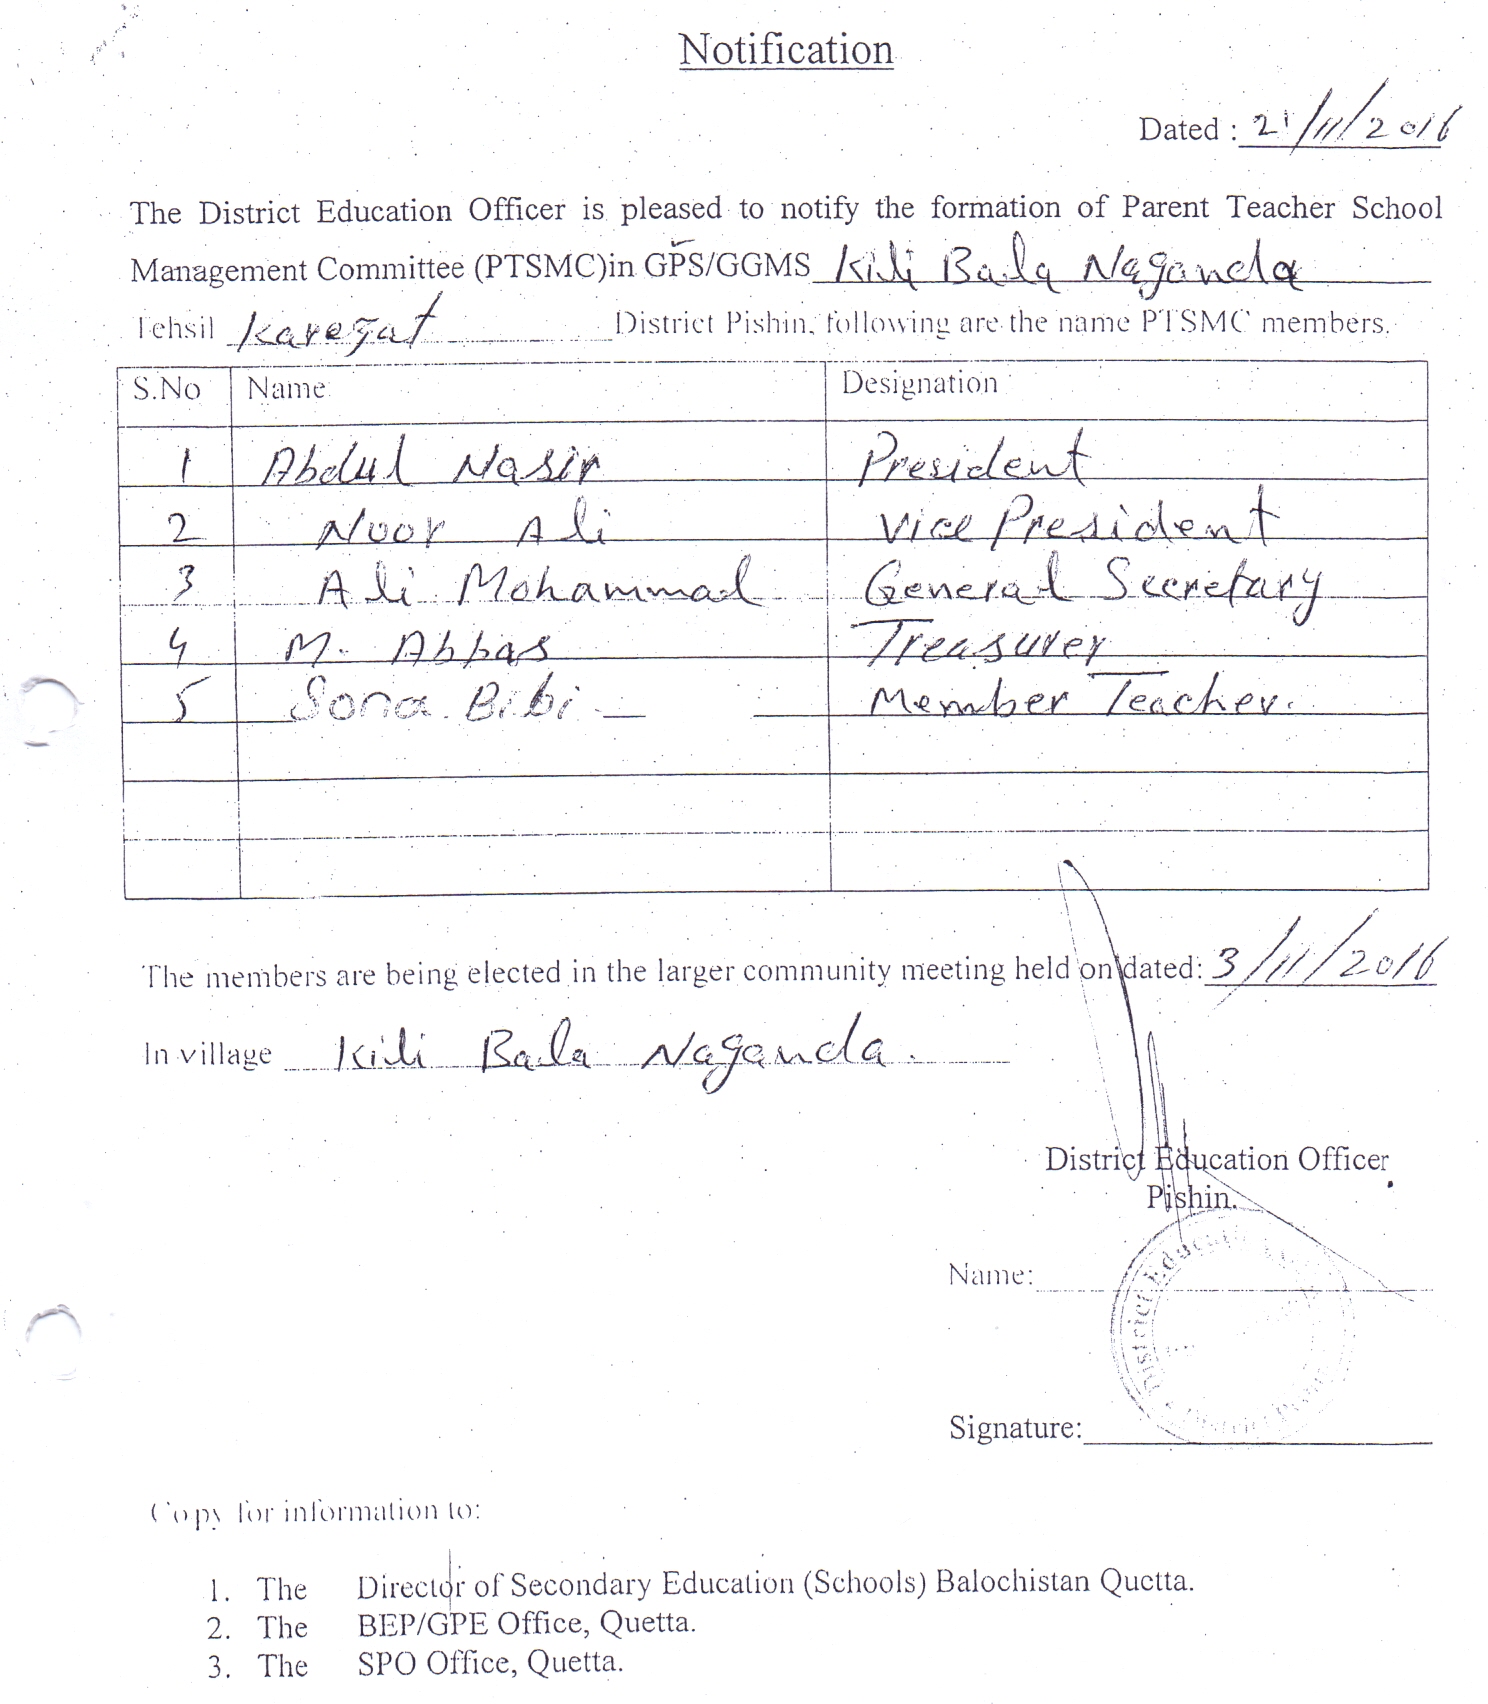 Notification
Dated : 21/11/2016
The District Education Officer is pleased to notify the formation of Parent Teacher School
Management Committee (PTSMC)in GPS/GGMS Kili Bala Naganda
Tehsil Karezat District Pishin, following are the name PTSMC members.
S.No Name Designation
1 Abdul Nasir President
2 Noor Ali Vice President
3 Ali Mohammad General Secretary
4 M. Abbas Treasurer
5 Sona Bibi Member Teacher.
The members are being elected in the larger community meeting held on dated: 3/11/2016
In village Kili Bala Naganda.
District Education Officer
Pishin.
Name:
District Educati
District
Signature:
Copy for information to:
1. The Director of Secondary Education (Schools) Balochistan Quetta.
2. The BEP/GPE Office, Quetta.
3. The SPO Office, Quetta.